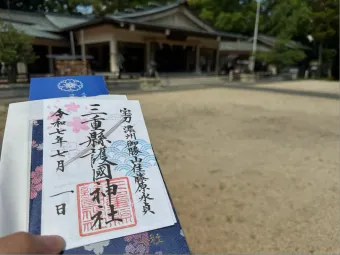 宝刀 濃州御勝山住藤原永貞
三重縣護國神社
令和七年七月一日